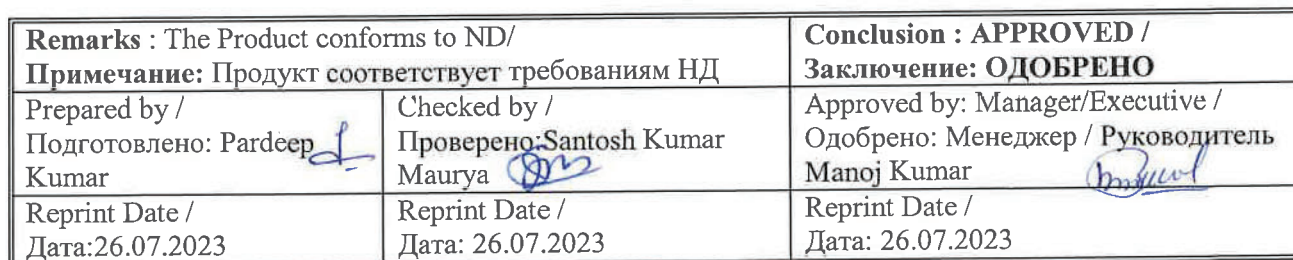 Remarks : The Product conforms to ND/
Примечание: Продукт соответствует требованиям НД
Conclusion : APPROVED /
Заключение: ОДОБРЕНО
Prepared by /
Подготовлено: Pardeep
Kumar
Checked by /
Проверено:Santosh Kumar
Maurya
Approved by: Manager/Executive /
Одобрено: Менеджер / Руководитель
Manoj Kumar
Reprint Date /
Дата:26.07.2023
Reprint Date /
Дата: 26.07.2023
Reprint Date /
Дата: 26.07.2023